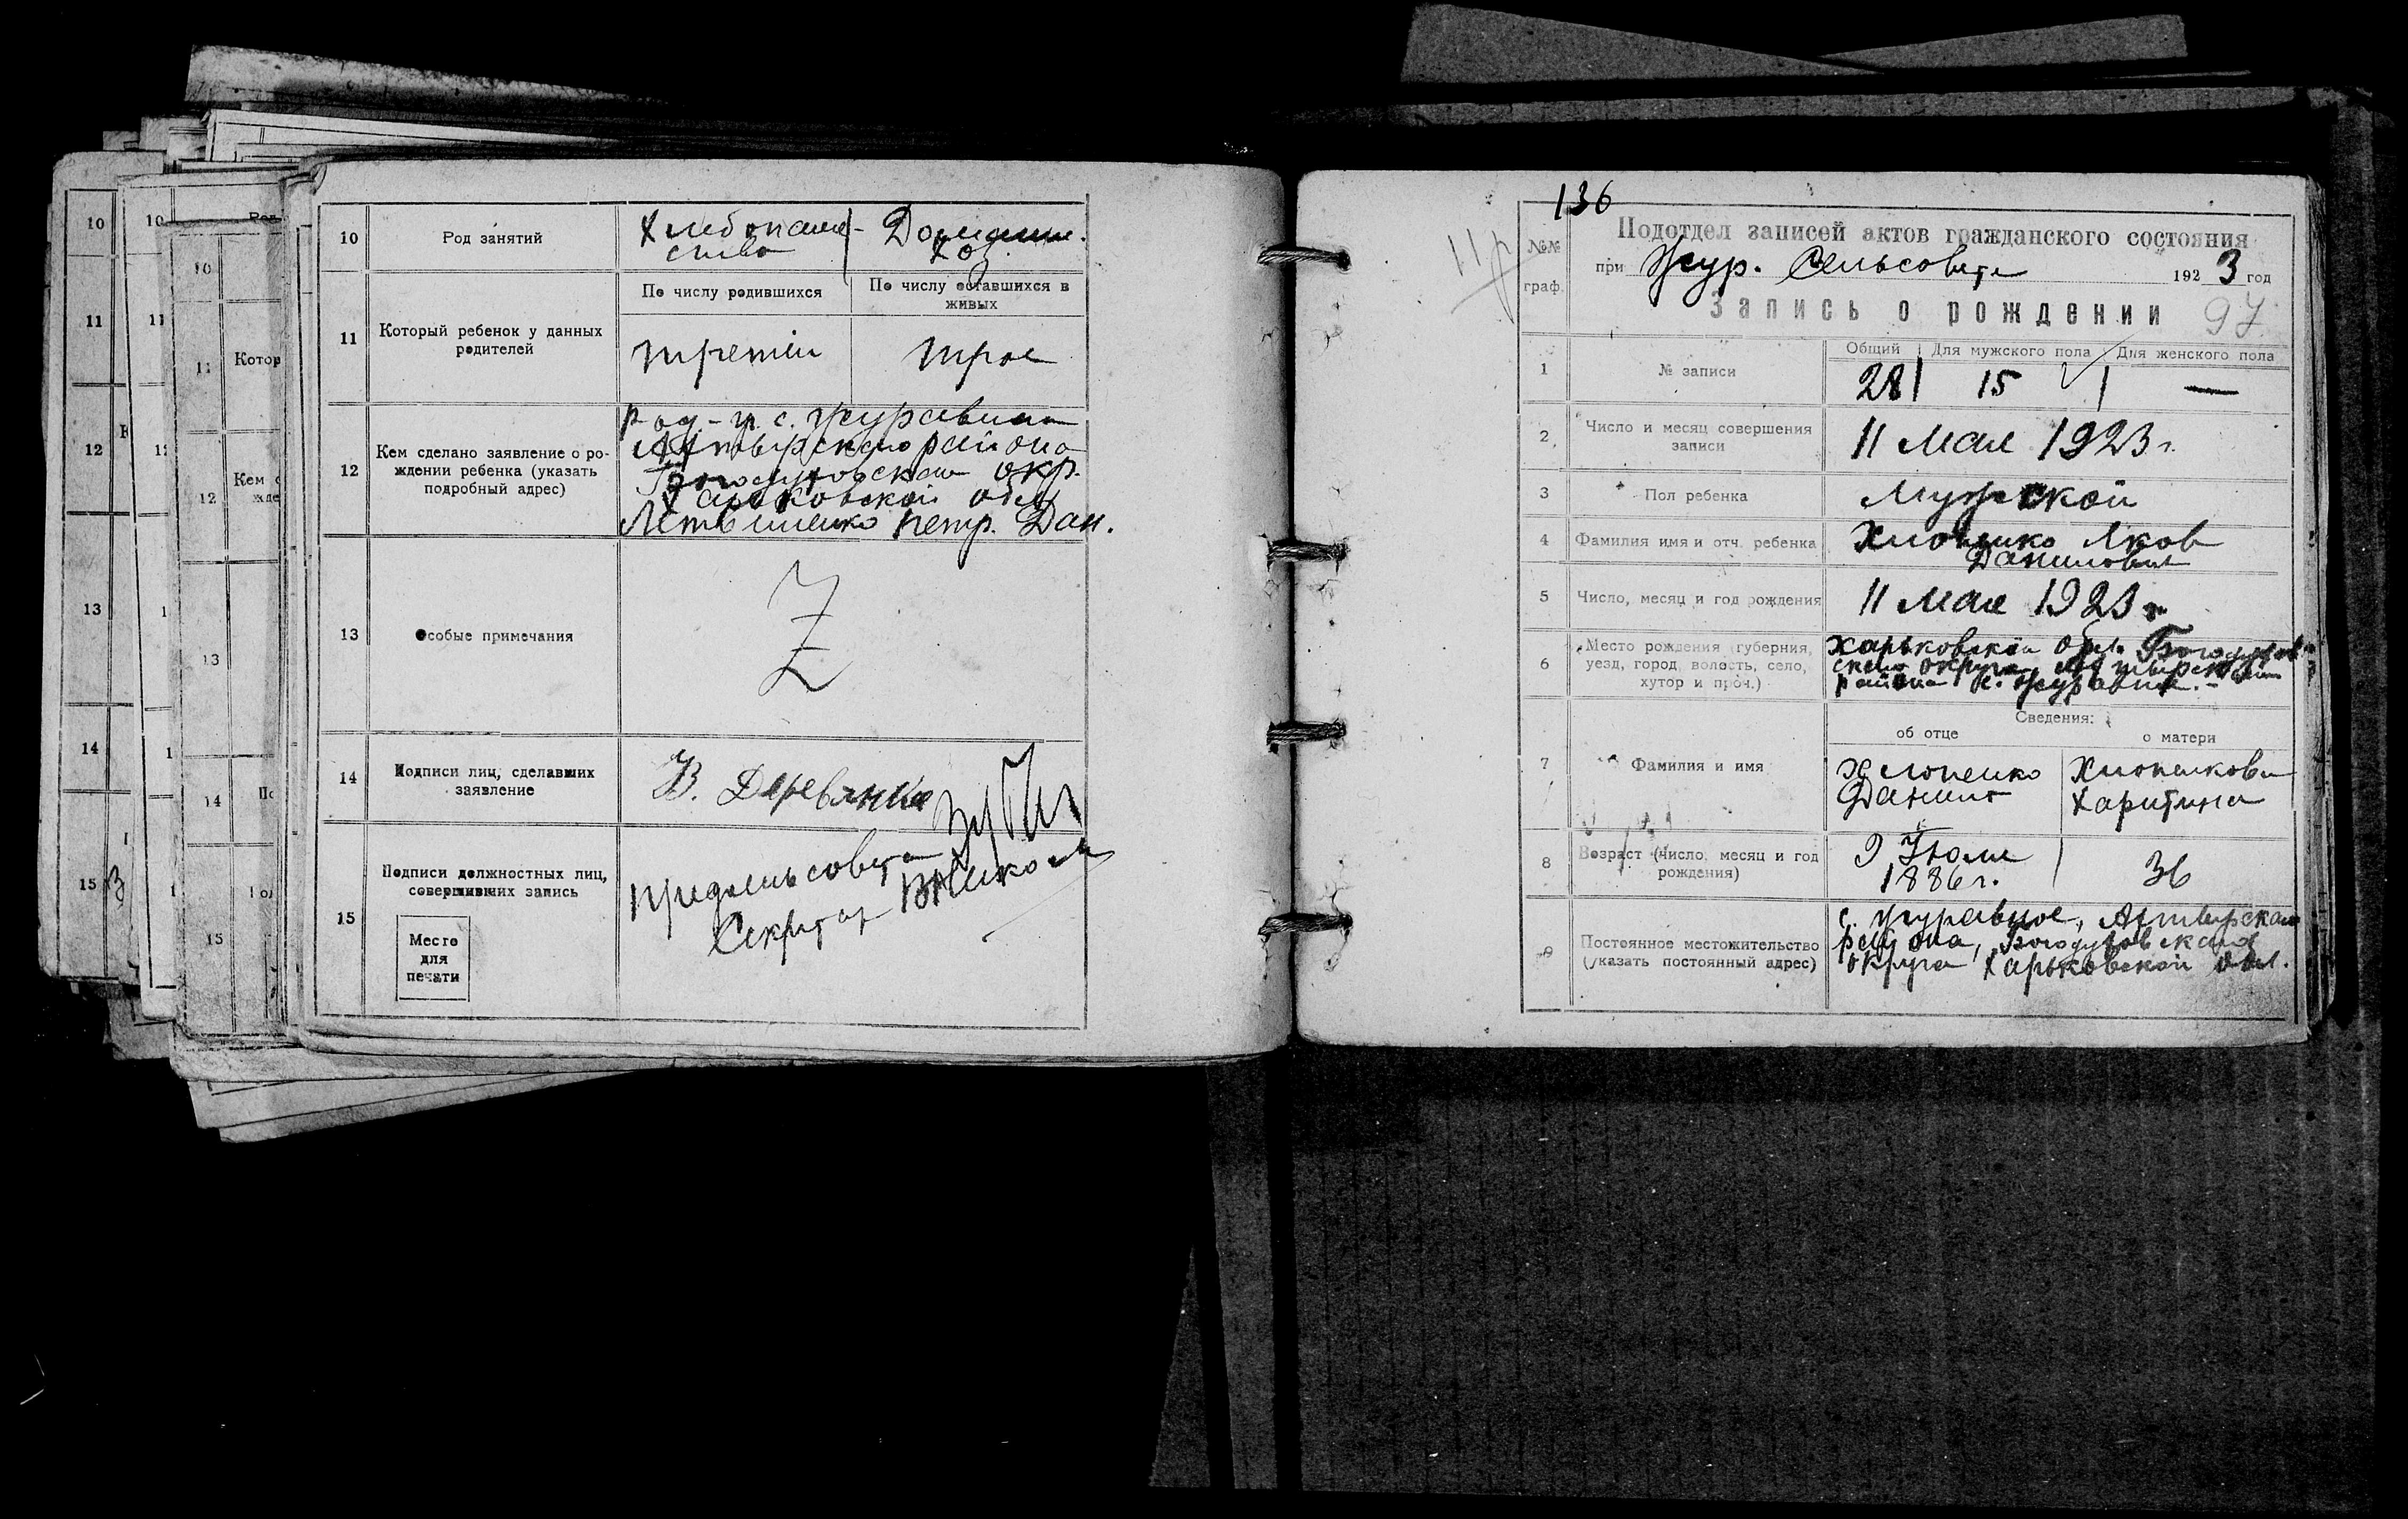 10
Род занятий
Хлебопаше-
ство
Домашн.
хоз.
11
Который ребенок у данных
родителей
По числу родившихся
По числу оставшихся в
живых
третий
трое
12
Кем сделано заявление о ро-
ждении ребенка (указать
подробный адрес)
с. Журавная
района
окр.
Харьковской обл.
Петр. Дан.
13
Особые примечания
Z
14
Подписи лиц, сделавших
заявление
В. Деревянка
15
Подписи должностных лиц,
совершивших запись
Место
для
печати
Секретар
136
№№
граф.
Подотдел записей актов гражданского состояния
при Жур. Сельсовете 1923 год
Запись о рождении 97
1
№ записи
Общий
Для мужского пола
Для женского пола
28
15
—
2
Число и месяц совершения
записи
11 Мая 1923 г.
3
Пол ребенка
Мужской
4
Фамилия имя и отч. ребенка
Яков
Данилович
5
Число, месяц и год рождения
11 Мая 1923 г.
6
Место рождения (губерния,
уезд, город, волость, село,
хутор и проч.)
Харьковской обл. Богодухов-
ского округа
района с.
7
Фамилия и имя
Сведения:
об отце
о матери
Данил
Харитина
8
Возраст (число, месяц и год
рождения)
9 Июля
1886 г.
36
9
Постоянное местожительство
(указать постоянный адрес)
с. Журавное,
района, Богодуховского
округа Харьковской обл.
10
11
12
13
14
15
10
11
Котор
12
Кем с
жде
13
14
15